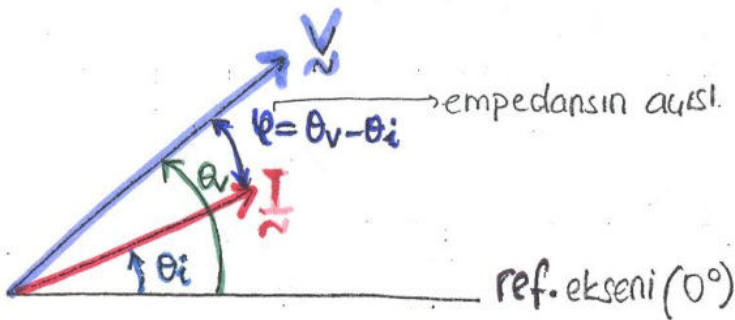 V
φ = θv - θi → empedansın açısı.
θv
I
θi
ref. ekseni (0°)